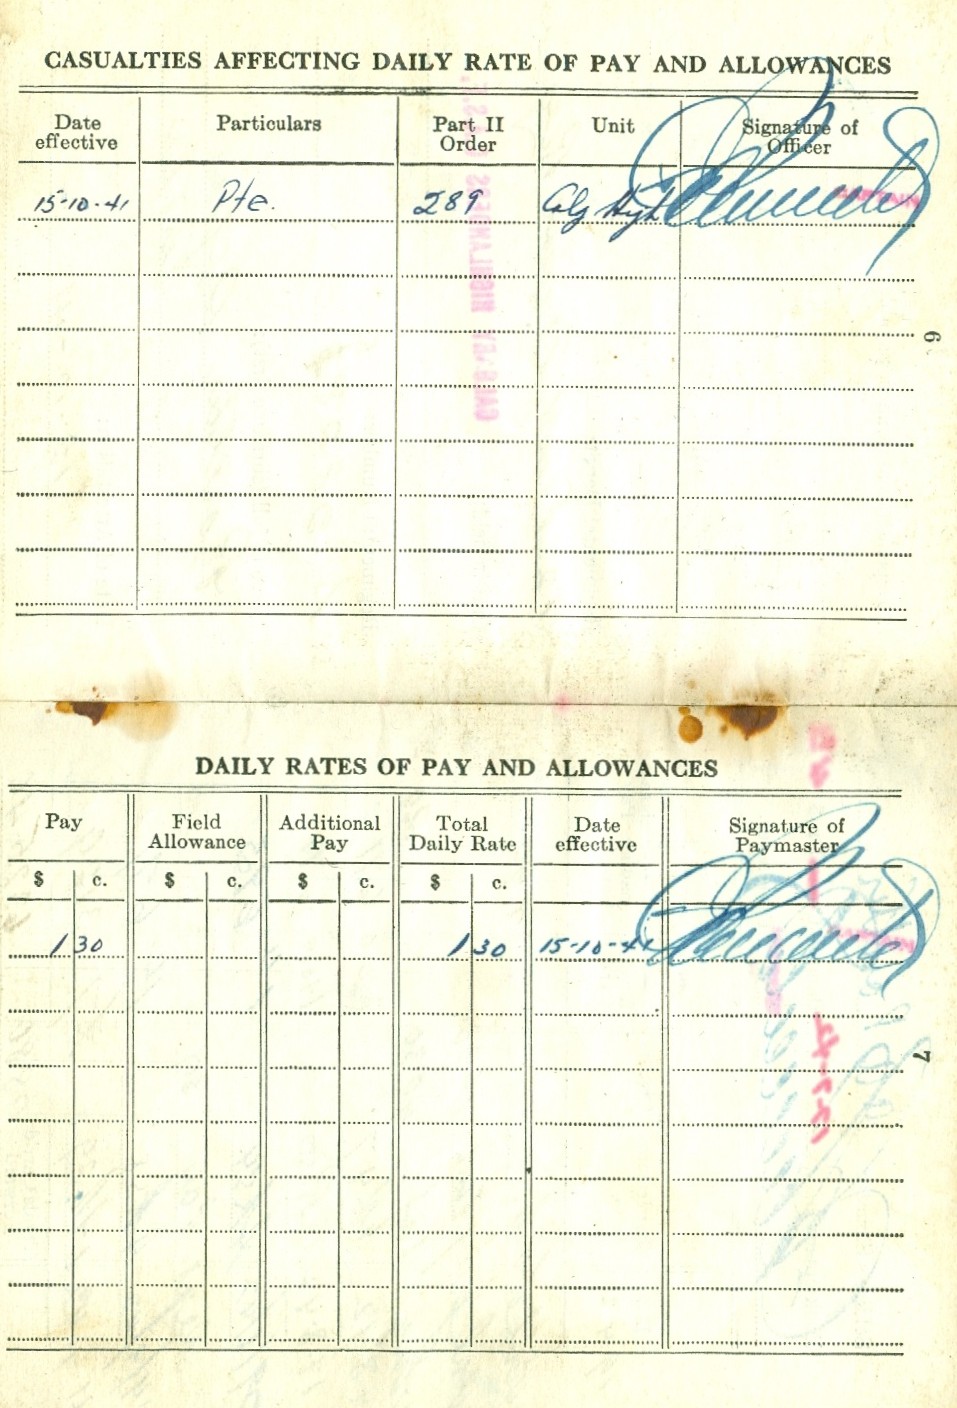 CASUALTIES AFFECTING DAILY RATE OF PAY AND ALLOWANCES
Date effective Particulars Part II Order Unit Signature of Officer
15-10-41 Pte. 289 Calg High
6
DAILY RATES OF PAY AND ALLOWANCES
Pay Field Allowance Additional Pay Total Daily Rate Date effective Signature of Paymaster
$ c. $ c. $ c. $ c.
1 30 1 30 15-10-41
7